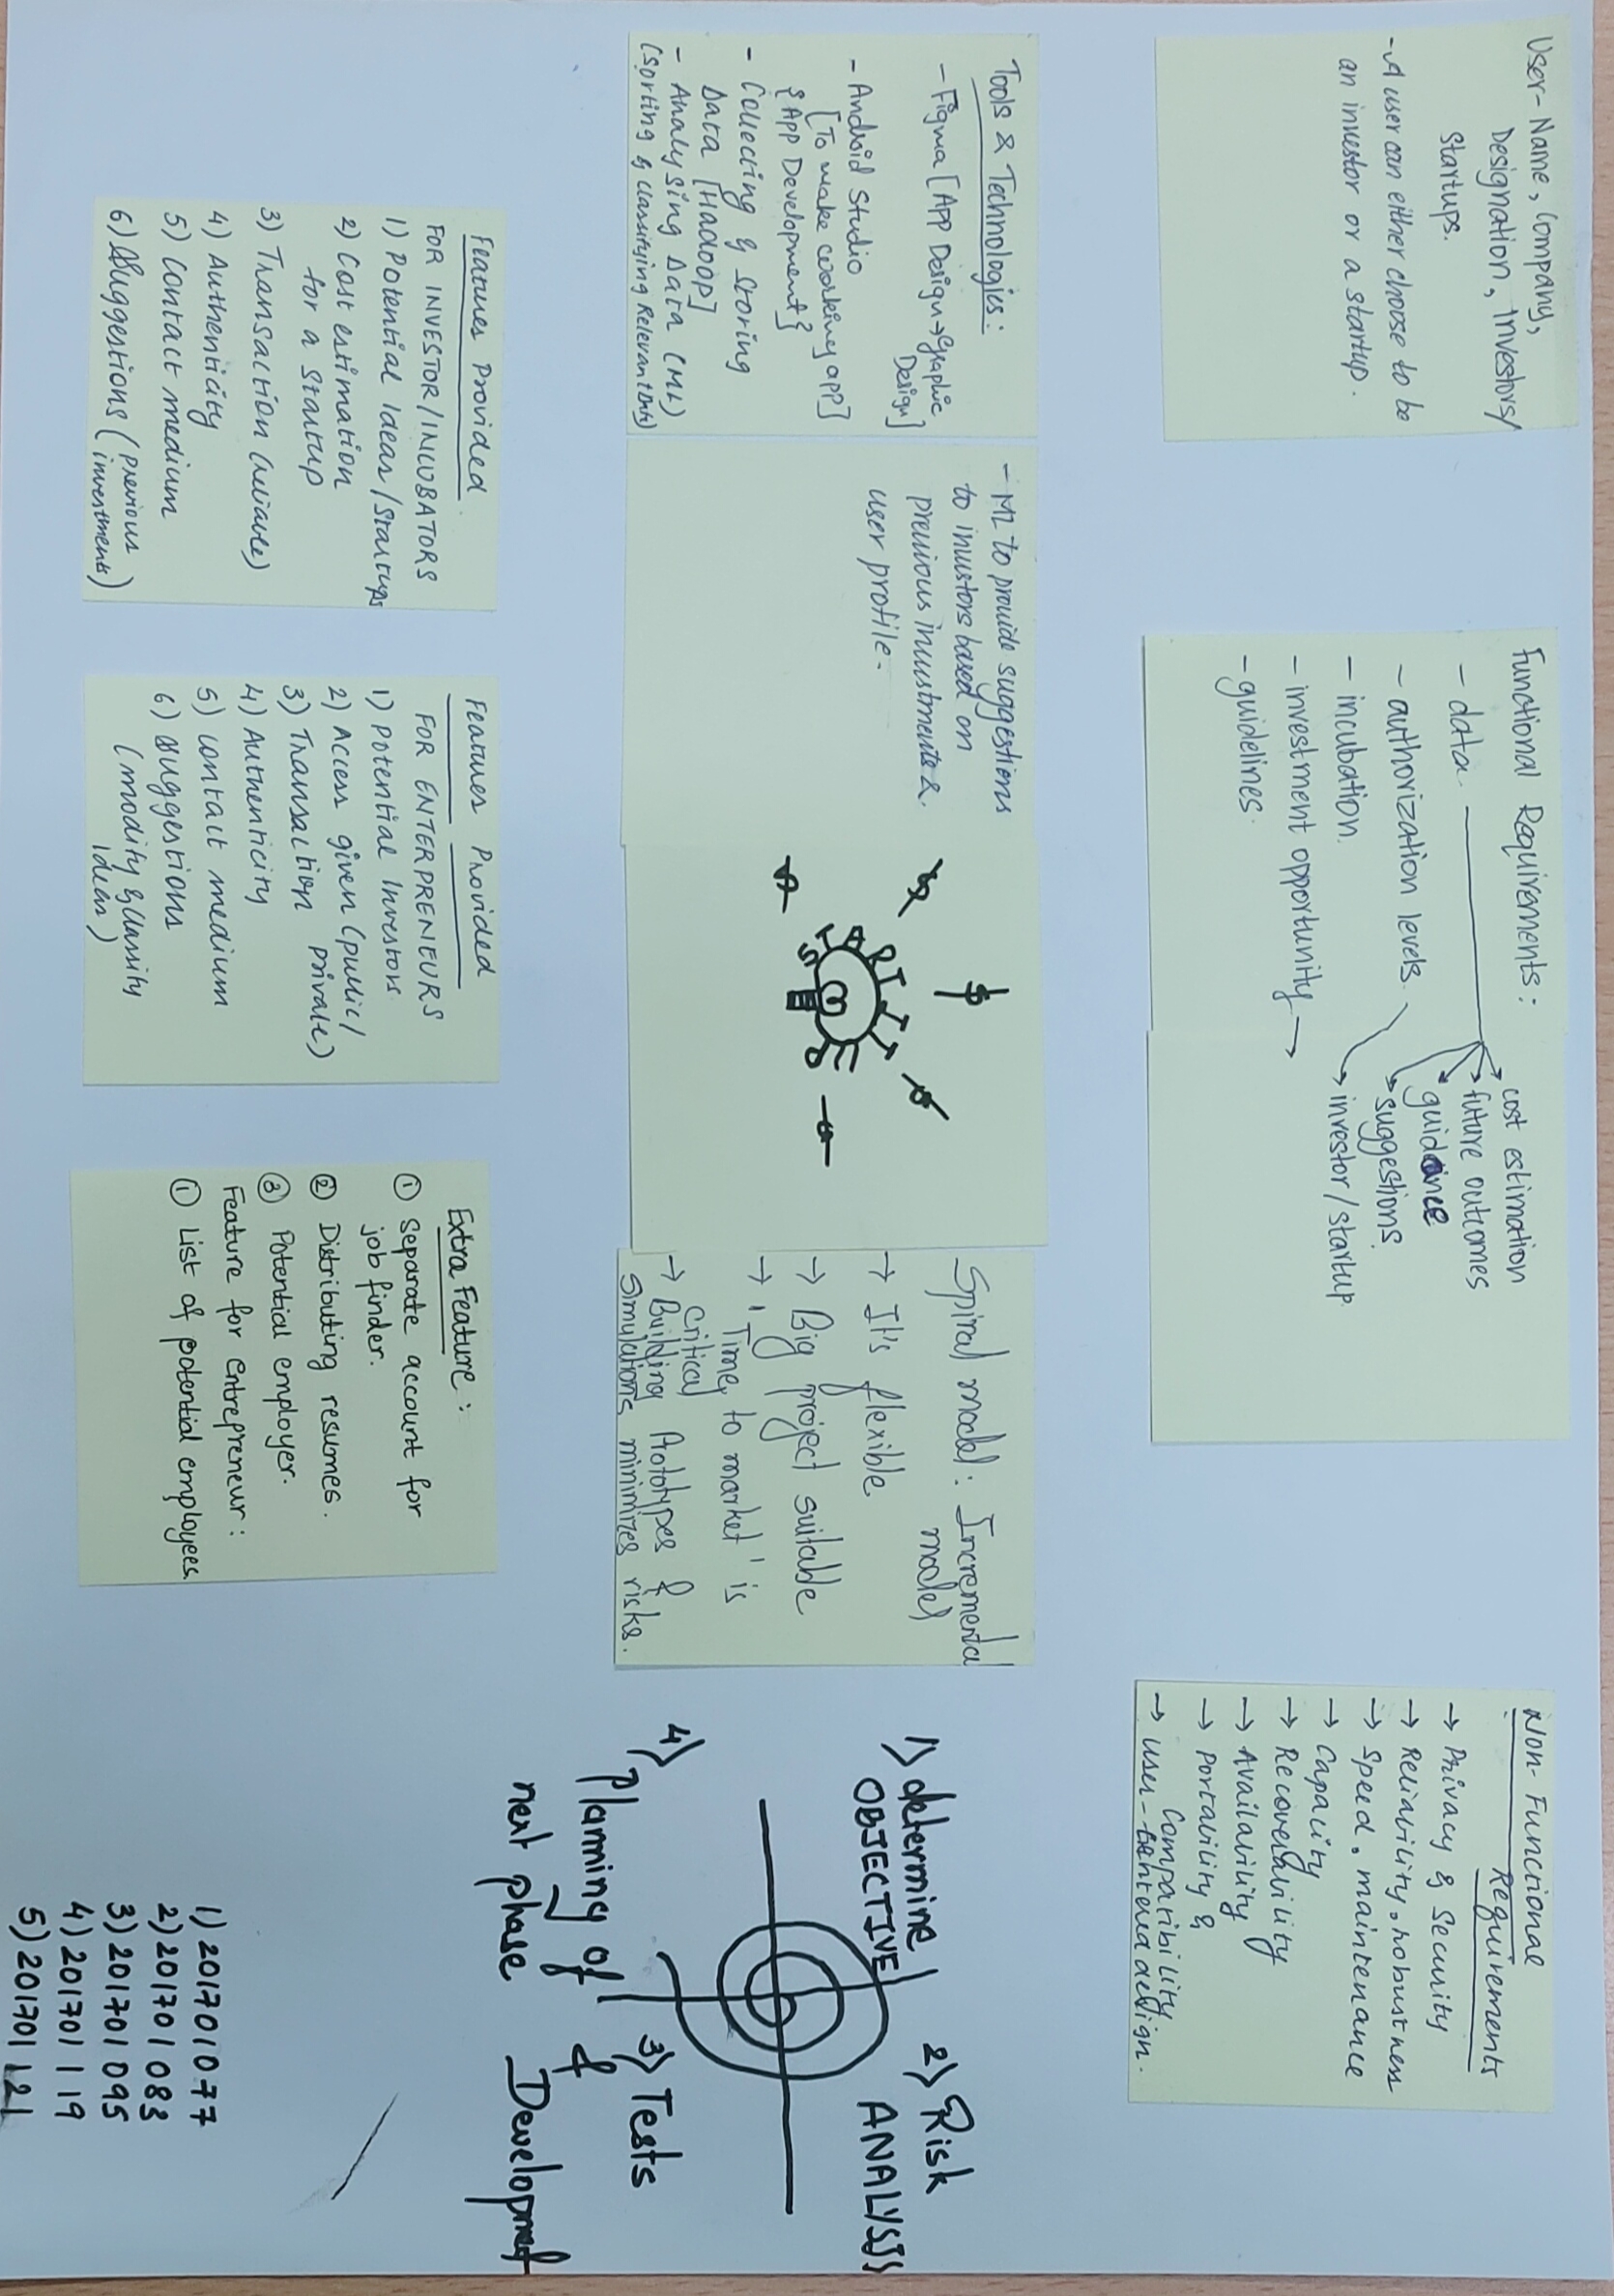 User- Name, Company,
Designation, Investors/
Startups.
- A user can either choose to be
an investor or a startup.
Functional Requirements:
- data
cost estimation
future outcomes
guidance
- authorization levels
suggestions
investor/startup
- incubation
- investment opportunity →
- guidelines.
Non-Functional
Requirements
→ Privacy & Security
→ Reliability, robustness
→ Speed, maintenance
→ Capality
→ Recoverability
→ Availability
→ Portability &
Compatibility
→ User-centered design.
Tools & Technologies:
- Figma [App Design → Graphic
Design]
- Android Studio
[To make working app]
{App Development}
- Collecting & storing
Data [Hadoop]
- Analysing Data (ML)
(Sorting & Classifying Relevant Data)
- ML to provide suggestions
to investors based on
previous investments &
user profile -
START IT
UP
Spiral model: Incremental
model
→ It's flexible
→ Big project suitable
→ 'Time to market' is
Critical
→ Building Prototypes &
Simulations minimizes risks.
1) determine
OBJECTIVE
2) Risk
ANALYSIS
3) Tests
&
Development
4) Planning of
next phase
Features Provided
FOR INVESTOR/INCUBATORS
1) Potential Ideas/Startups
2) Cost estimation
for a startup
3) Transaction
4) Authenticity
5) Contact medium
6) Suggestions (previous
investments)
Features Provided
FOR ENTERPRENEURS
1) Potential Investors
2) Access given (public/
private)
3) Transaction
4) Authenticity
5) Contact medium
6) Suggestions
(modify & classify
Ideas)
Extra Feature:
① Separate account for
job finder.
② Distributing resumes.
③ Potential employer.
Feature for entrepreneur:
① List of potential employees
1) 201701077
2) 201701083
3) 201701095
4) 201701119
5) 201701121